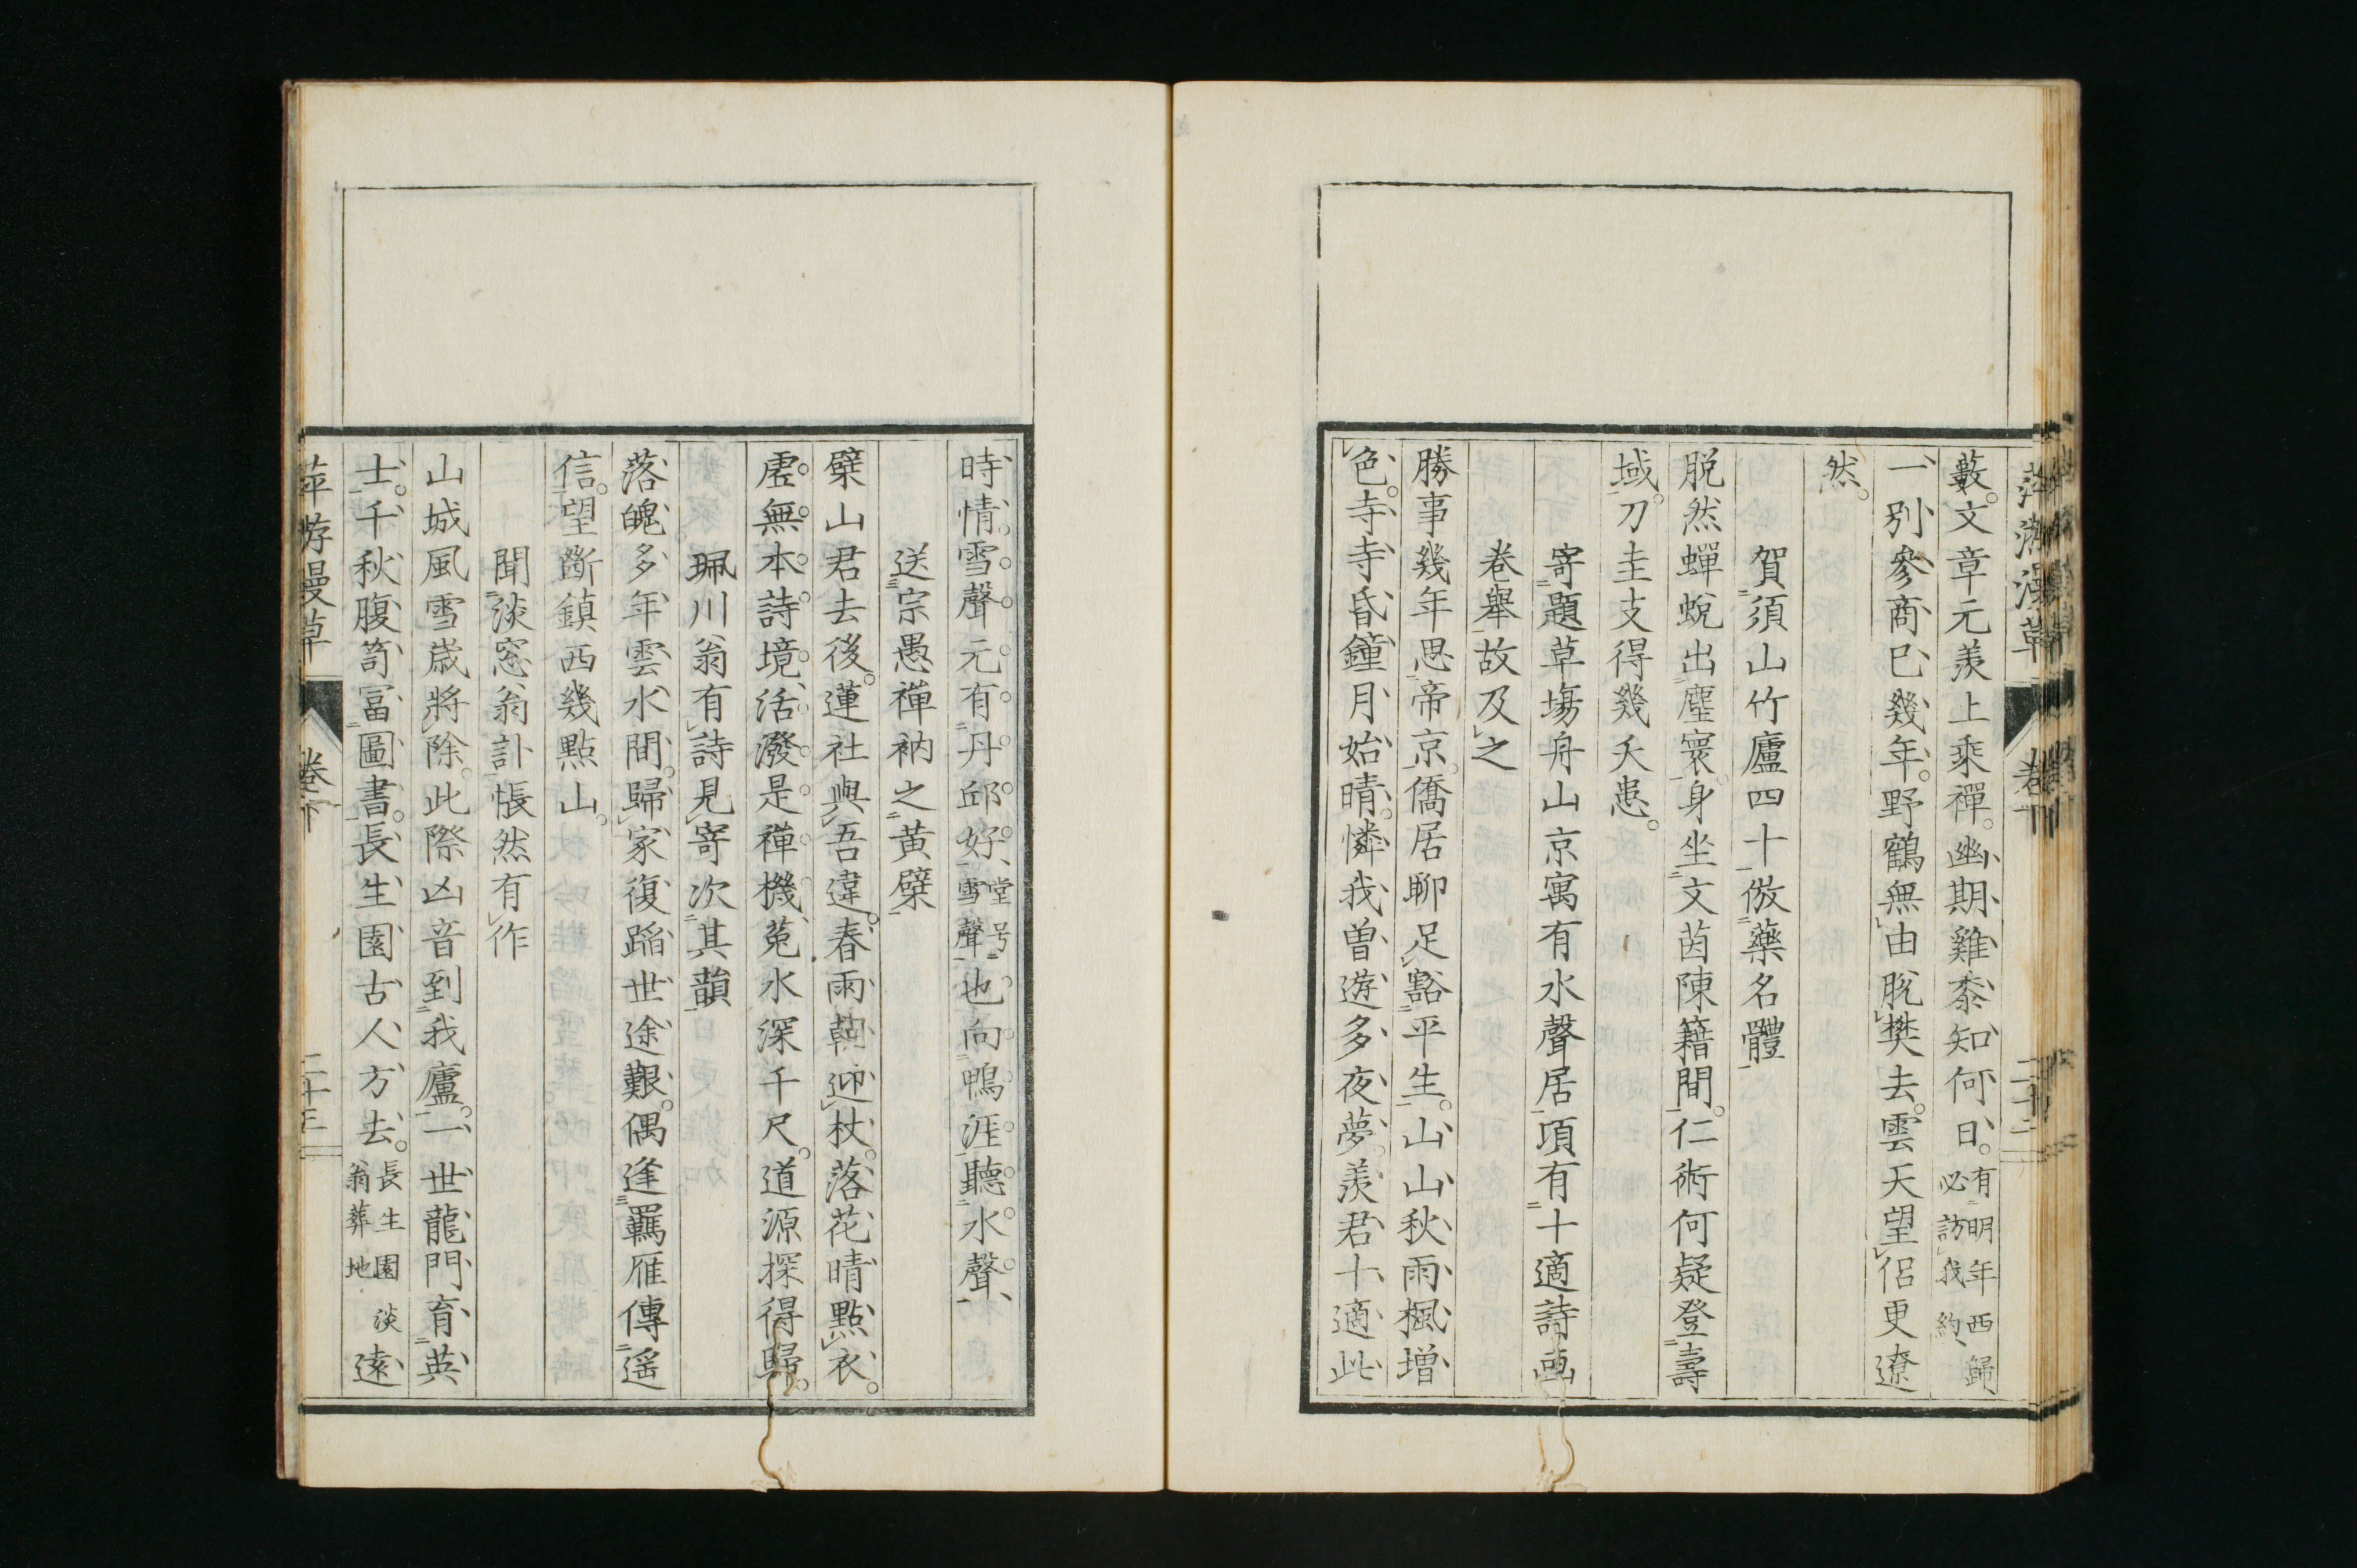 藪文章元羨上乘禪幽期雞黍知何日有明年西歸必訪我約
一別參商已幾年野鶴無由脫樊去雲天望侶更遼
然
賀須山竹廬四十倣藥名體
脱然蟬蛻出塵寰身坐文茵陳籍間仁術何疑登壽
域刀圭支得幾夭患
寄題草塲舟山京寓有水聲居項有十適詩画
卷舉故及之
勝事幾年思帝京僑居聊足豁平生山山秋雨楓增
色寺寺昏鐘月始晴憐我曾遊多夜夢羨君十適此
時情雪聲元有丹邱好堂号雪聲也向鴨涯聽水聲
送宗愚禪衲之黃檗
檗山君去後蓮社與吾違春雨蘜迎杖落花晴點衣
虛無本詩境活潑是禪機菟水深千尺道源探得歸
珮川翁有詩見寄次其韻
落魄多年雲水間歸家復蹈世途艱偶逢羈雁傳遥
信望斷鎮西幾點山
聞淡窓翁訃悵然有作
山城風雪歳將除此際凶音到我廬一世龍門育英
士千秋腹笥冨圖書長生園古人方去長生園淡翁葬地遠
萍游漫草 卷下 二十三